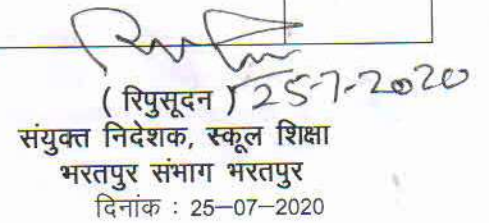 ( रिपुसूदन ) 25-7-2020
संयुक्त निदेशक, स्कूल शिक्षा
भरतपुर संभाग भरतपुर
दिनांक : 25–07–2020